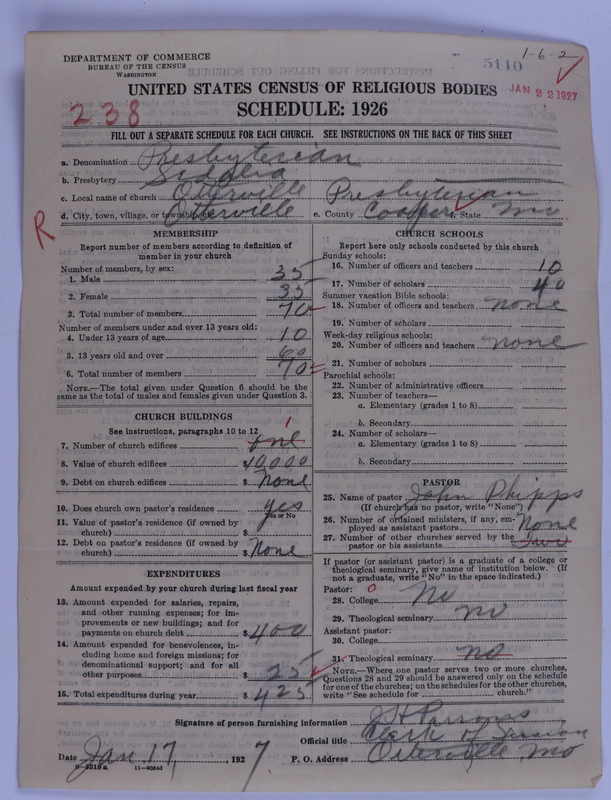 1-6-2
DEPARTMENT OF COMMERCE
BUREAU OF THE CENSUS
WASHINGTON
5110
JAN 22 1927
UNITED STATES CENSUS OF RELIGIOUS BODIES
238
SCHEDULE: 1926
FILL OUT A SEPARATE SCHEDULE FOR EACH CHURCH. SEE INSTRUCTIONS ON THE BACK OF THIS SHEET
a. Denomination Presbyterian
b. Presbytery Sedalia
c. Local name of church Otterville Presbyterian
d. City, town, village, or township Otterville e. County Cooper f. State Mo
R
MEMBERSHIP
Report number of members according to definition of member in your church
Number of members, by sex:
1. Male 35
2. Female 35
3. Total number of members 70
Number of members under and over 13 years old:
4. Under 13 years of age 10
5. 13 years old and over 60
6. Total number of members 70
NOTE.—The total given under Question 6 should be the same as the total of males and females given under Question 3.
CHURCH BUILDINGS
See instructions, paragraphs 10 to 12
1
7. Number of church edifices one
8. Value of church edifices $10,000
9. Debt on church edifices $ None
10. Does church own pastor's residence yes
Yes or No
11. Value of pastor's residence (if owned by church) $
12. Debt on pastor's residence (if owned by church) $ None
EXPENDITURES
Amount expended by your church during last fiscal year
13. Amount expended for salaries, repairs, and other running expenses; for improvements or new buildings; and for payments on church debt $ 400
14. Amount expended for benevolences, including home and foreign missions; for denominational support; and for all other purposes $ 25
15. Total expenditures during year $ 425
CHURCH SCHOOLS
Report here only schools conducted by this church
Sunday schools:
16. Number of officers and teachers 10
17. Number of scholars 40
Summer vacation Bible schools:
18. Number of officers and teachers none
19. Number of scholars
Week-day religious schools:
20. Number of officers and teachers none
21. Number of scholars
Parochial schools:
22. Number of administrative officers
23. Number of teachers—
a. Elementary (grades 1 to 8)
b. Secondary
24. Number of scholars—
a. Elementary (grades 1 to 8)
b. Secondary
PASTOR
25. Name of pastor John Phipps
(If church has no pastor, write "None")
26. Number of ordained ministers, if any, employed as assistant pastors None
27. Number of other churches served by the pastor or his assistants Two
If pastor (or assistant pastor) is a graduate of a college or theological seminary, give name of institution below. (If not a graduate, write "No" in the space indicated.)
Pastor:
28. College No
29. Theological seminary no
Assistant pastor:
30. College
31. Theological seminary no
NOTE.—Where one pastor serves two or more churches, Questions 28 and 29 should be answered only on the schedule for one of the churches; on the schedules for the other churches, write "See schedule for church."
Signature of person furnishing information J H Parsons
Official title Clerk of Session
Date Jan 17, 1927 P. O. Address Otterville Mo
11—9054d